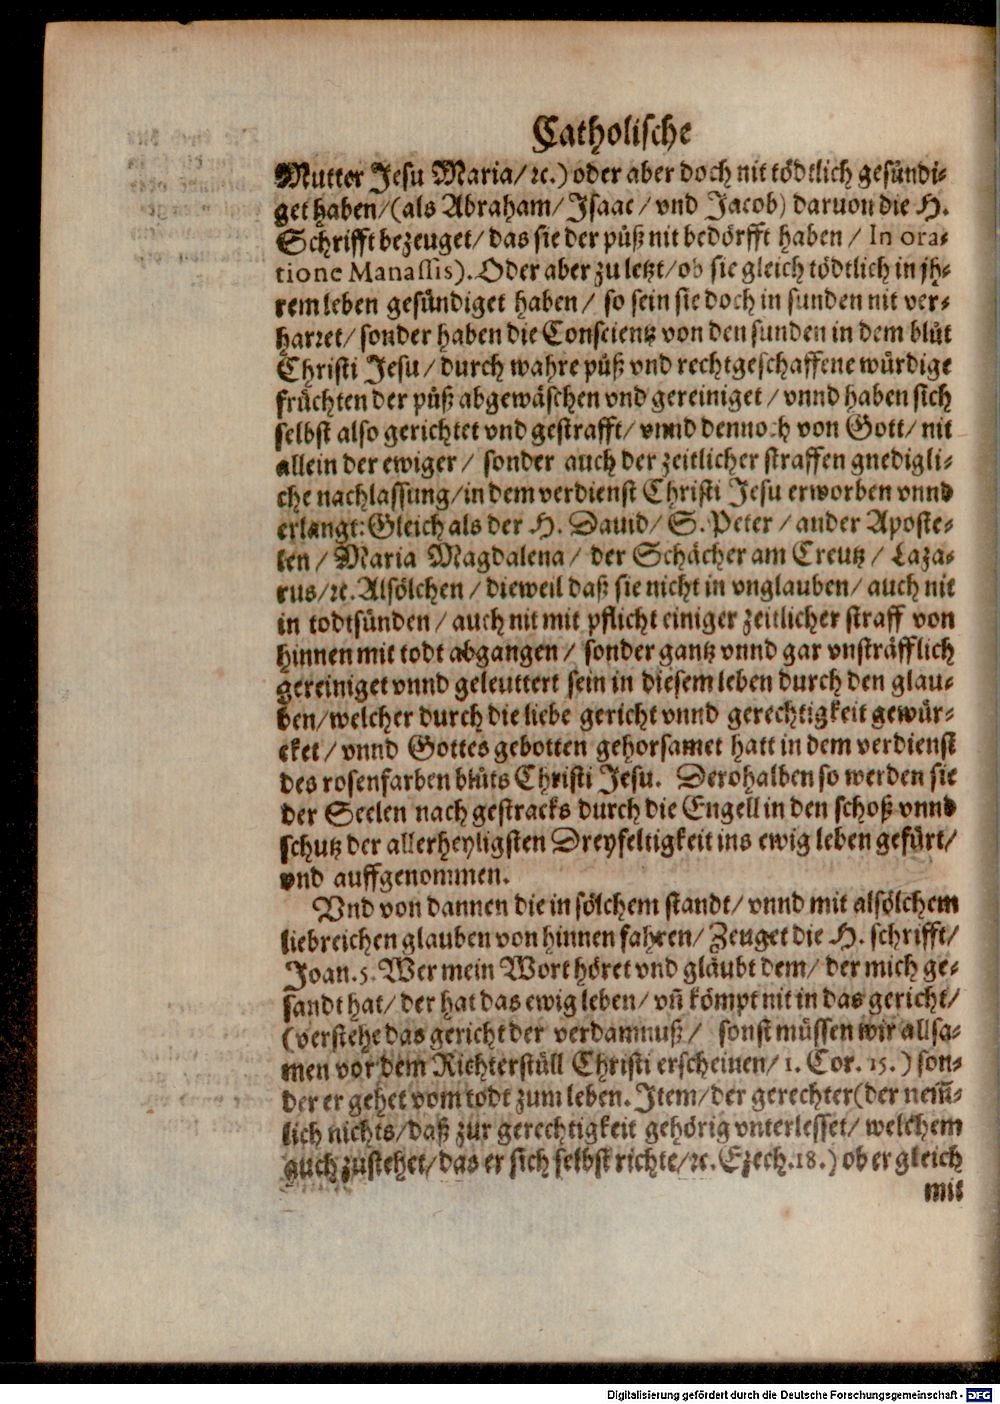 Catholische
Mutter Jesu Maria/ ꝛc.) oder aber doch nit tödtlich gesündi-
get haben/ (als Abraham/ Isaac/ vnd Jacob) daruon die H.
Schrifft bezeuget/ das sie der püß nit bedörfft haben/ In ora-
tione Manassis). Oder aber zu letzt/ ob sie gleich tödtlich in jh-
rem leben gesündiget haben/ so sein sie doch in sunden nit ver-
harret/ sonder haben die Conscientz von den sunden in dem blůt
Christi Jesu/ durch wahre půß vnd rechtgeschaffene würdige
früchten der půß abgewäschen vnd gereiniget/ vnnd haben sich
selbst also gerichtet vnd gestrafft/ vnnd dennoch von Gott/ nit
allein der ewiger/ sonder auch der zeitlicher straffen gnedigli-
che nachlassung/ in dem verdienst Christi Jesu erworben vnnd
erlangt: Gleich als der H. Dauid/ S. Peter/ ander Aposte-
len/ Maria Magdalena/ der Schächer am Creutz/ Laza-
rus/ ꝛc. Alsölchen/ dieweil daß sie nicht in vnglauben/ auch nit
in todtsünden/ auch nit mit pflicht einiger zeitlicher straff von
hinnen mit todt abgangen/ sonder gantz vnnd gar vnsträfflich
gereiniget vnnd geleuttert sein in diesem leben durch den glau-
ben/ welcher durch die liebe gericht vnnd gerechtigkeit gewür-
cket/ vnnd Gottes gebotten gehorsamet hatt in dem verdienst
des rosenfarben blůts Christi Jesu. Derohalben so werden sie
der Seelen nach gestracks durch die Engell in den schoß vnnd
schutz der allerheyligsten Dreyfeltigkeit ins ewig leben gefürt/
vnd auffgenommen.
Vnd von dannen die in sölchem standt/ vnnd mit alsölchem
liebreichen glauben von hinnen fahren/ Zeuget die H. schrifft/
Joan. 5. Wer mein Wort höret vnd gläubt dem/ der mich ge-
sandt hat/ der hat das ewig leben/ vñ kömpt nit in das gericht/
(verstehe das gericht der verdamnuß/ sonst müssen wir allsa-
men vor dem Richterstůll Christi erscheinen/ 1. Cor. 15.) son-
der er gehet vom todt zum leben. Item/ der gerechter (der nem̃-
lich nichts/ daß zůr gerechtigkeit gehörig vnterlesset/ welchem
auch zustehet/ das er sich selbst richte/ ꝛc. Ezech. 18.) ob er gleich
mit
Digitalisierung gefördert durch die Deutsche Forschungsgemeinschaft - DFG